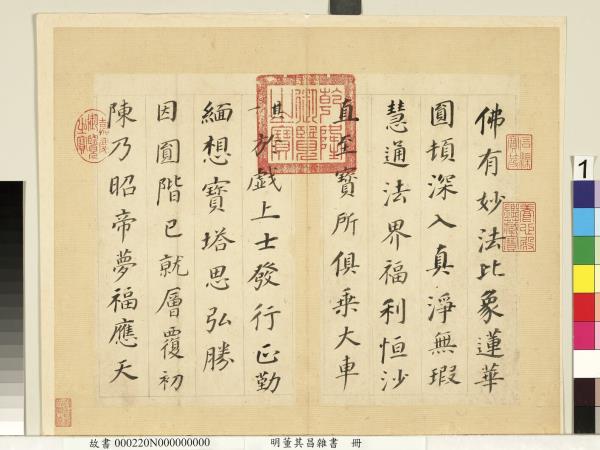 佛有妙法比象蓮華
圓頓深入真淨無瑕
慧通法界福利恒沙
直至寶所俱乘大車
一其於戲上士發行正勤
緬想寶塔思弘勝
因圓階已就層覆初
陳乃昭帝夢福應天
乾隆御覽之寶
嘉慶御覽之寶
1
故書 000220N000000000 明董其昌雜書 冊